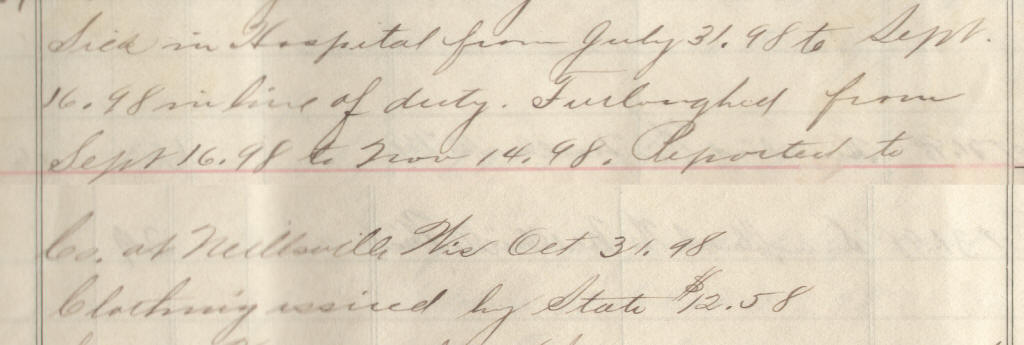 Sick in Hospital from July 31.98 to Sept.
16.98 in line of duty. Furloughed from
Sept 16.98 to Nov 14.98. Reported to
Co. at Neillsville Wis Oct 31.98
Clothing issued by State $12.58